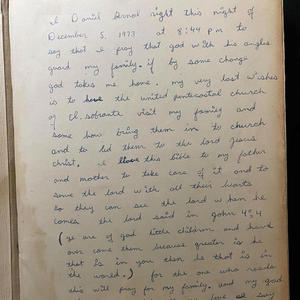 I Daniel Arnod right this night of
December 5, 1973 at 8:44 P.M. to
say that I pray that god with his angles
guard my family. if by some change
god takes me home. my very last wishes
is to have the united pentecostal church
of El. sobrante visit my family and
some how bring them in to church
and to led them to the lord Jesus
christ. I leave this bible to my father
and mother to take care of it and to
serve the lord with all their hearts
so they can see the lord when he
comes. the lord said in John 4:4
(ye are of god little children, and have
over come them: because greater is he
that is in you than he that is in
the world.) for the one who reads
this will pray for my family. and my god
love all way